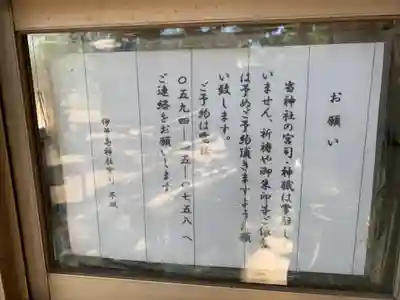 お願い
当神社の宮司・神職は常駐して
いません、祈祷や御朱印等ご依頼
は予めご予約頂きますようお願
い致します。
ご予約は
〇五九四ー
五ー〇七五八 へ
ご連絡をお願いします